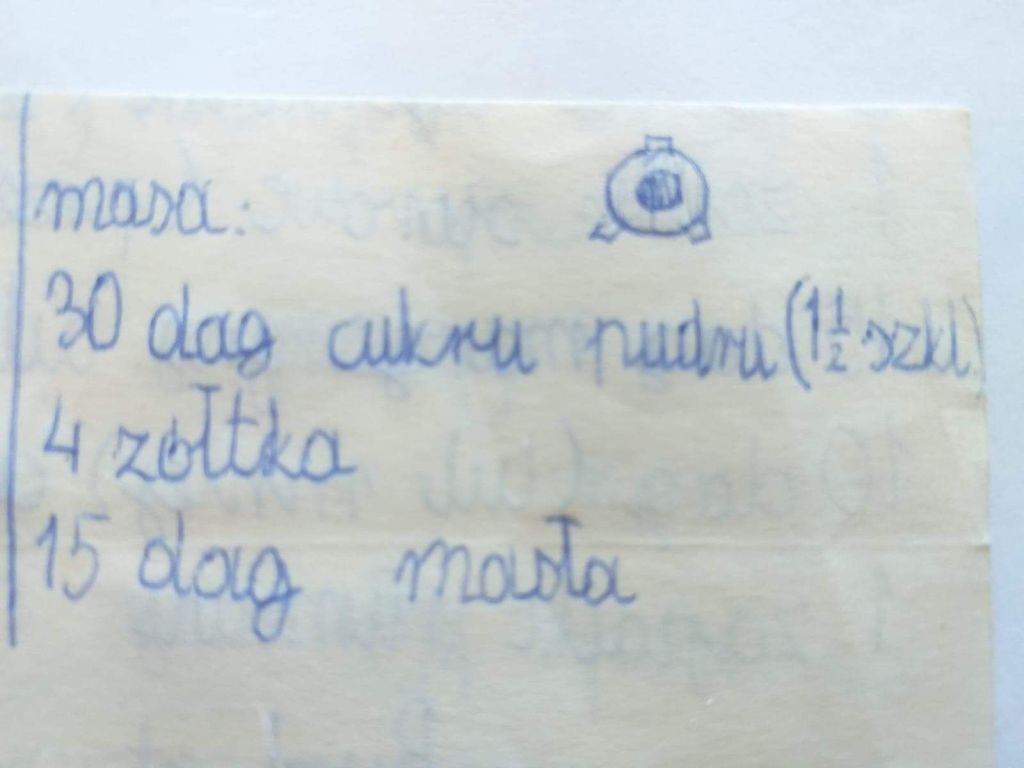 masa:
30 dag cukru pudru (1 1/2 szkl.)
4 żółtka
15 dag masła